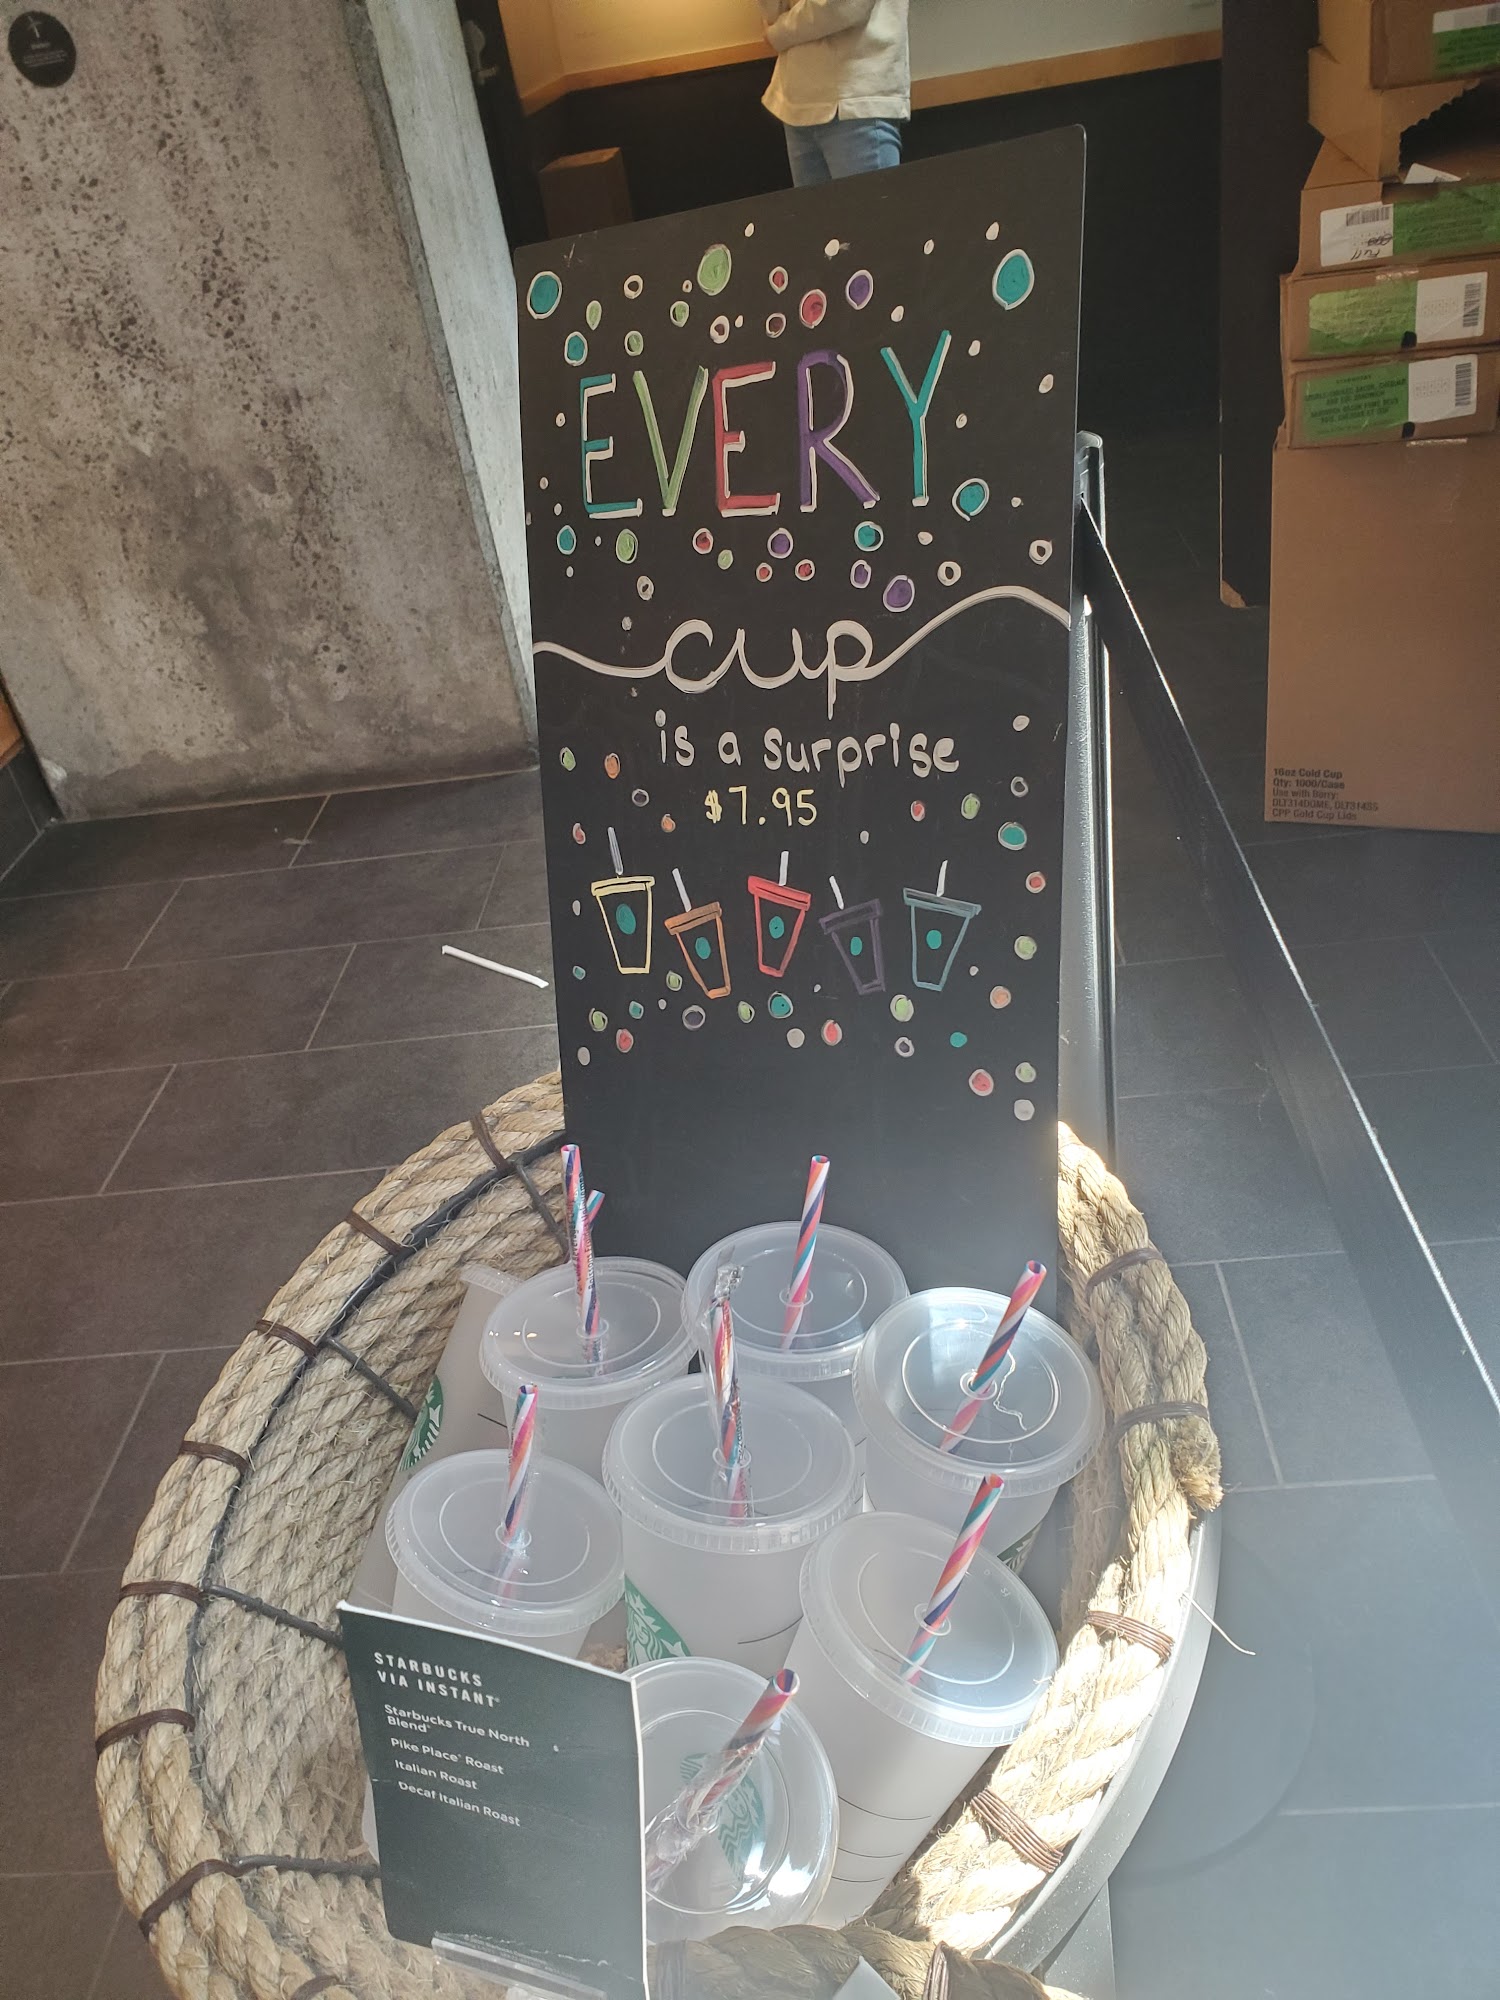 EVERY
cup
is a surprise
$7.95
16oz Cold Cup
Qty: 1000/Case
Use with Berry:
CPP Gold Cup Lids
STARBUCKS
VIA INSTANT®
Starbucks True North
Blend®
Pike Place® Roast
Italian Roast
Decaf Italian Roast